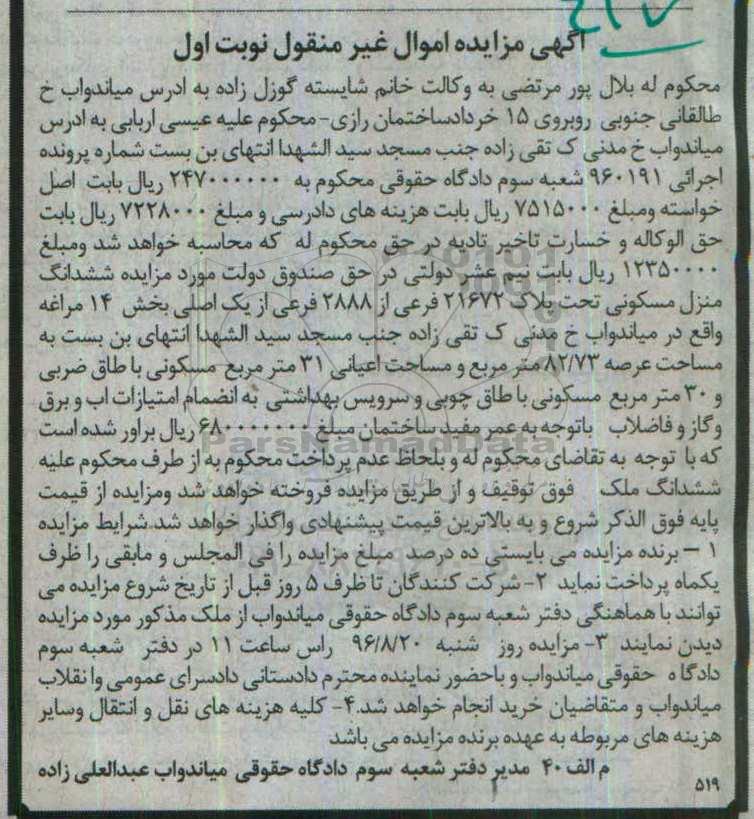 ۲۱۷
آگهی مزایده اموال غیر منقول نوبت اول
محکوم له بلال پور مرتضی به وکالت خانم شایسته گوزل زاده به ادرس میاندواب خ
طالقانی جنوبی روبروی ۱۵ خردادساختمان رازی-محکوم علیه عیسی اربابی به ادرس
میاندواب خ مدنی ک تقی زاده جنب مسجد سید الشهدا انتهای بن بست شماره پرونده
اجرائی ۹۶۰۱۹۱ شعبه سوم دادگاه حقوقی محکوم به ۲۴۷۰۰۰۰۰۰ ریال بابت اصل
خواسته ومبلغ ۷۵۱۵۰۰۰ ریال بابت هزینه های دادرسی و مبلغ ۷۲۲۸۰۰۰ ریال بابت
حق الوکاله و خسارت تاخیر تادیه در حق محکوم له که محاسبه خواهد شد ومبلغ
۱۲۳۵۰۰۰۰ ریال بابت نیم عشر دولتی در حق صندوق دولت مورد مزایده ششدانگ
منزل مسکونی تحت پلاک ۲۱۶۷۲ فرعی از ۲۸۸۸ فرعی از یک اصلی بخش ۱۴ مراغه
واقع در میاندواب خ مدنی ک تقی زاده جنب مسجد سید الشهدا انتهای بن بست به
مساحت عرصه ۸۲/۷۳ متر مربع و مساحت اعیانی ۳۱ متر مربع مسکونی با طاق ضربی
و ۳۰ متر مربع مسکونی با طاق چوبی و سرویس بهداشتی به انضمام امتیازات اب و برق
وگاز و فاضلاب باتوجه به عمر مفید ساختمان مبلغ ۶۸۰۰۰۰۰۰۰ ریال براور شده است
ParsNamadData
که با توجه به تقاضای محکوم له و بلحاظ عدم پرداخت محکوم به از طرف محکوم علیه
ششدانگ ملک فوق توقیف و از طریق مزایده فروخته خواهد شد ومزایده از قیمت
پایه فوق الذکر شروع و به بالاترین قیمت پیشنهادی واگذار خواهد شد.شرایط مزایده
۱ – برنده مزایده می بایستی ده درصد مبلغ مزایده را فی المجلس و مابقی را ظرف
یکماه پرداخت نماید ۲- شرکت کنندگان تا ظرف ۵ روز قبل از تاریخ شروع مزایده می
توانند با هماهنگی دفتر شعبه سوم دادگاه حقوقی میاندواب از ملک مذکور مورد مزایده
دیدن نمایند ۳- مزایده روز شنبه ۹۶/۸/۲۰ راس ساعت ۱۱ در دفتر شعبه سوم
دادگا ه حقوقی میاندواب و باحضور نماینده محترم دادستانی دادسرای عمومی وانقلاب
میاندواب و متقاضیان خرید انجام خواهد شد.۴- کلیه هزینه های نقل و انتقال وسایر
هزینه های مربوطه به عهده برنده مزایده می باشد
م الف ۴۰ مدیر دفتر شعبه سوم دادگاه حقوقی میاندواب عبدالعلی زاده
۵۱۹